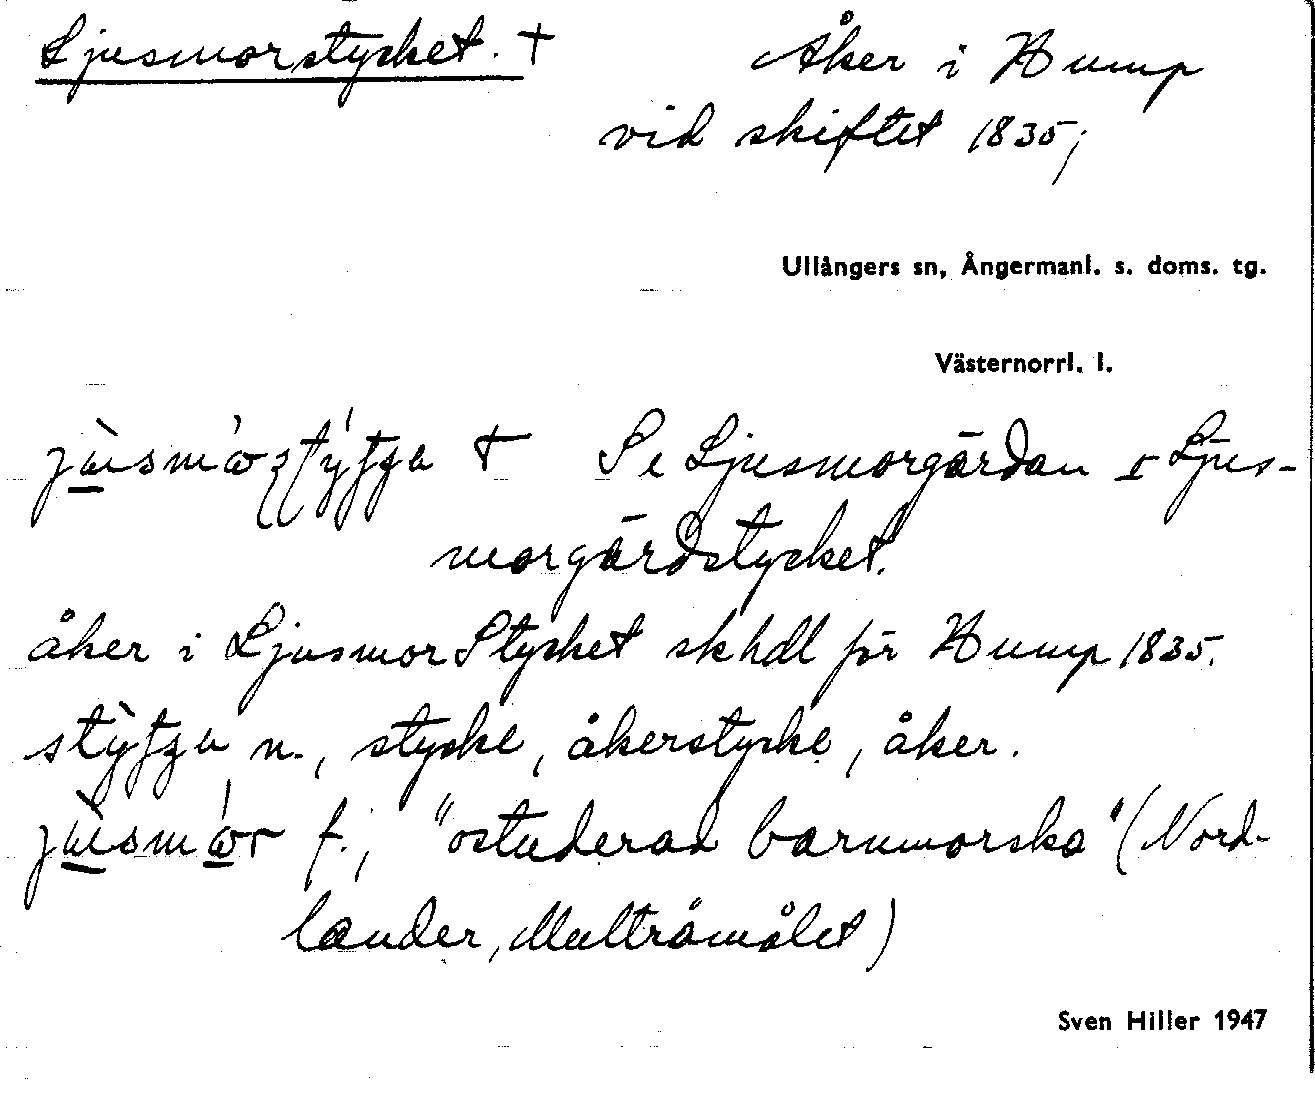 Ljusmorstycket. † Åker i Hump
vid skiftet 1835;
Ullångers sn, Ångermanl. s. doms. tg.
Västernorrl. l.
† Se Ljusmorgärdan o Ljus-
morgärdstycket.
åker i LjusmorStycket skhdl för Hump 1835.
n., stycke, åkerstycke, åker.
f., "ostuderad barnmorska" (Nord-
lander, Multråmålet)
Sven Hiller 1947